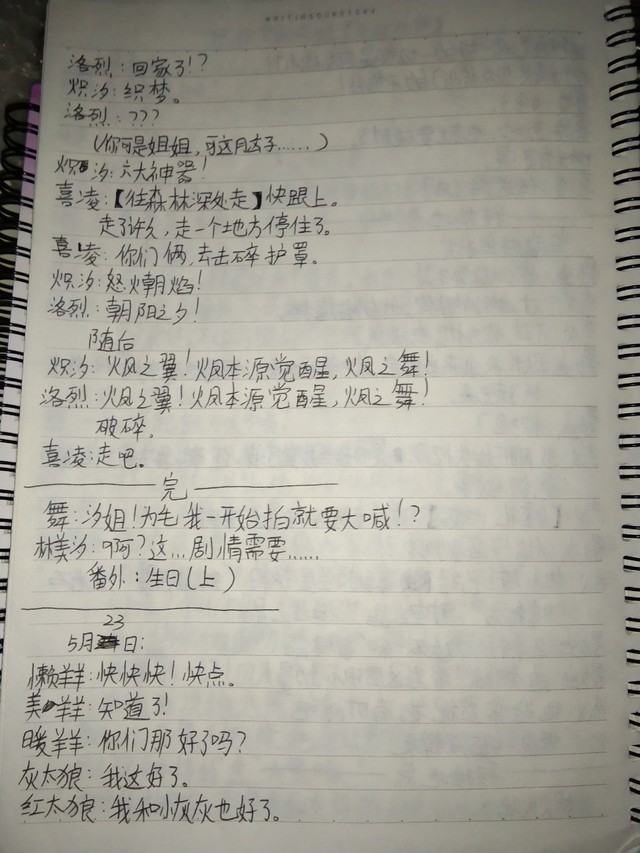 洛烈：回家了！？
炽汐：织梦。
洛烈：？？？
（你可是姐姐，于这月去子……）
炽汐：六大神器！
喜凌：【往森林深处走】快跟上。
走了许久，走一个地方停住了。
喜凌：你们俩，去击碎护罩。
炽汐：怒火朝焰！
洛烈：朝阳之夕！
随后
炽汐：火凤之翼！火凤本源觉醒，火凤之舞！
洛烈：火凤之翼！火凤本源觉醒，火凤之舞！
破碎。
喜凌：走吧。
完
舞：汐姐！为毛我一开始拍就要大喊！？
林美汐：啊？这…剧情需要……
番外：生日（上）
23
5月日：
懒羊羊：快快快！快点。
美羊羊：知道了！
暖羊羊：你们那好了吗？
灰太狼：我这好了。
红太狼：我和小灰灰也好了。